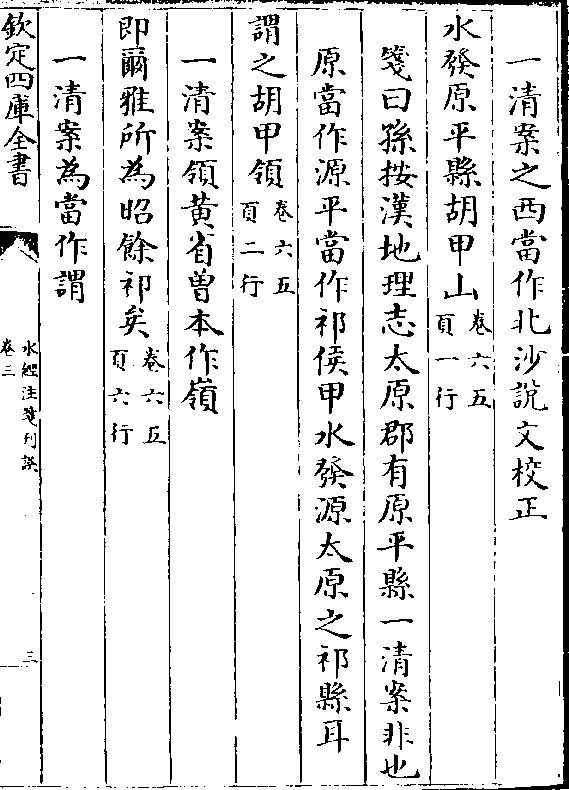 一清案之西當作北沙說文校正
水發原平縣胡甲山卷六五
頁一行
箋曰孫按漢地理志太原郡有原平縣一清案非也
原當作源平當作祁侯甲水發源太原之祁縣耳
謂之胡甲領卷六五
頁二行
一清案領黃省曾本作嶺
即爾雅所為昭餘祁矣卷六五
頁六行
一清案為當作謂
欽定四庫全書
水經注箋刊誤
卷三
三